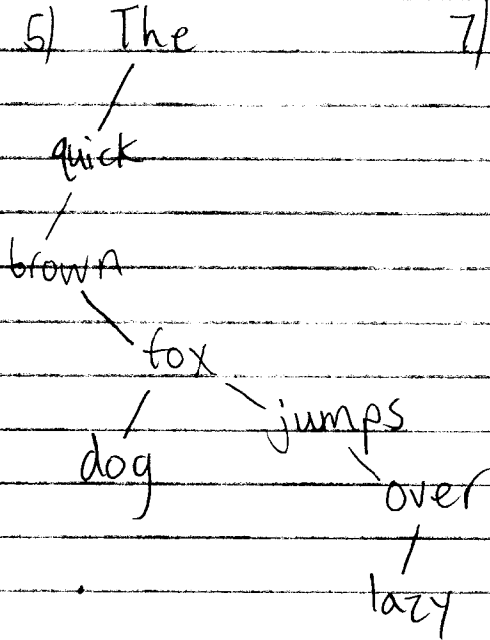 5) The 7)
quick
brown
fox
dog jumps
over
lazy